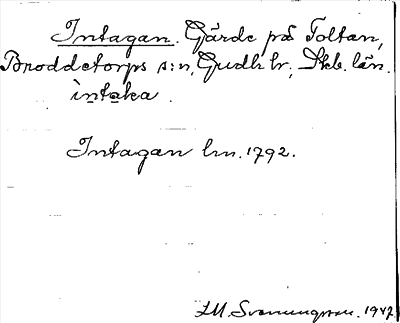 Intagan. Gärde på Toltan,
Broddetorps s:n, Gudh. hr., Skb. län.
ìntaka.
Intagan lm. 1792.
I.M. Svenungsson. 1947